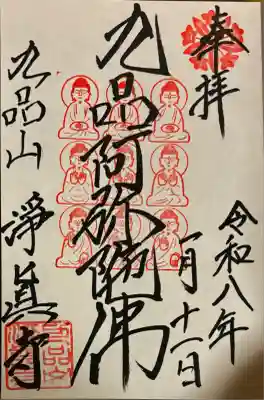 奉拝
令和八年
一月十一日
九品阿弥陀佛
九品山
淨眞寺